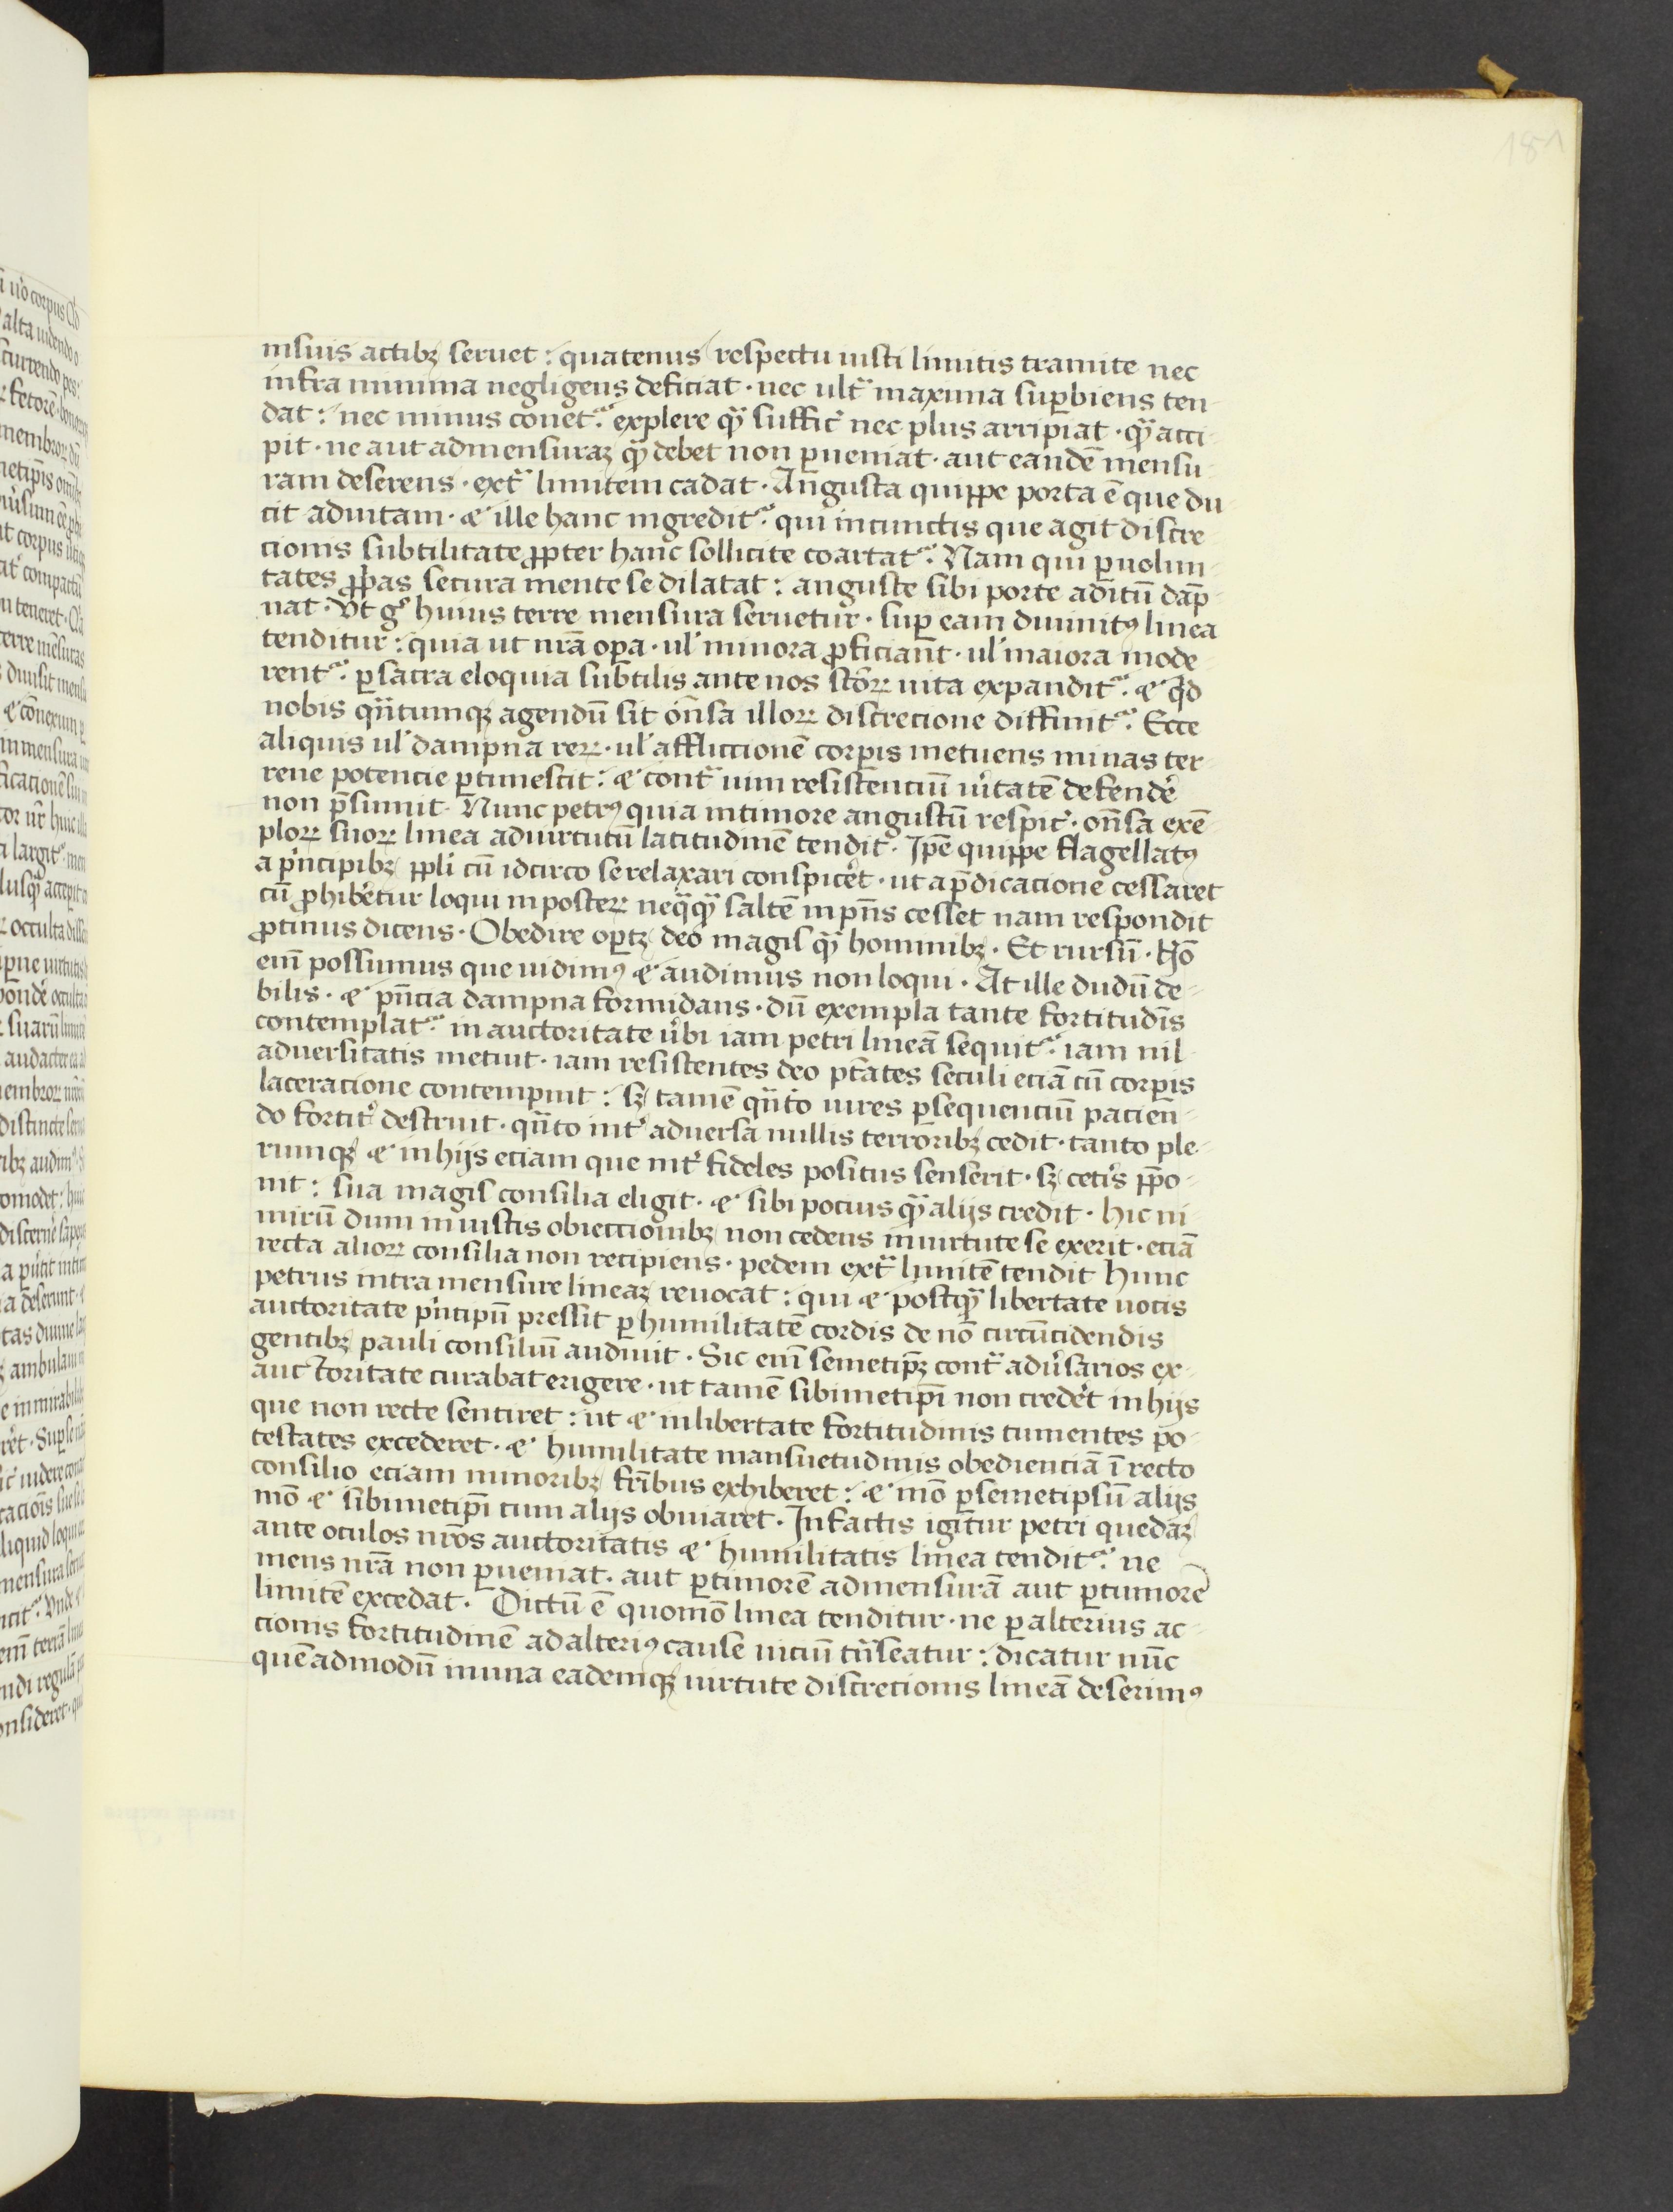 181
insuis actibꝫ seruet : quatenus respectu iusti limitis tramite nec
infra minima negligens deficiat · nec ultᷓ maxima suꝑbiens ten-
dat : nec minus conetᷓ explere qᷓ suffic̛ nec plus arripiat · qᷓ acci-
pit · ne aut admensuraꝫ qᷓ debet non ꝑueniat · aut eandē mensu-
ram deserens · extᷓ limitem cadat · Angusta quippe porta ē que du
cit aduitam · ⁊ ille hanc ingreditᷓ qui incunctis que agit discre-
cionis subtilitate ꝓpter hanc sollicite coartatᷓ Nam qui ꝑuolun-
tates ꝓp̄as secura mente se dilatat : anguste sibi porte aditū dāp-
nat · Vt gͦ huius terre mensura seruetur · suꝑ eam diuinitꝰ linea
tenditur : quia ut nrā oꝑa · ul̛ minora ꝓficiant · ul̛ maiora mode-
rentᷓ ꝑ sacra eloquia subtilis ante nos sc̄oꝝ uita expanditᷓ ⁊ qd̛
nobis qᷓntumqꝫ agendū sit on̄sa illoꝝ discrecione diffinitᷓ Ecce
aliquis ul̛ dampna reꝝ · ul̛ affliccionē corꝑis metuens minas ter-
rene potencie ꝑtimescit : ⁊ contᷓ uim resistenciū ūitatē defendē
non p̄sumit · Nunc petrꝰ quia intimore angustū respic̛ · on̄sa exē-
ploꝝ suoꝝ linea aduirtutū latitudinē tendit · Ip̄e quippe flagellatꝰ
a pͥncipibꝫ ppl̛i cū idcirco se relaxari conspicēt · ut ap̄dicacione cessaret
cū ꝓhibētur loqui inposteꝝ neqᷓqᷓ saltē inpn̄s cesset nam respondit
ꝓtinus dicens · Obedire oꝑtꝫ deo magis qᷓ hominibꝫ · Et rursū · Nō
eni̅ possumus que uidimꝰ ⁊ audimus non loqui · At ille dudū de-
bilis · ⁊ pn̄cia dampna formidans · dū exempla tante fortitudīs
contemplatᷓ in auctoritate ūbi iam petri lineā sequitᷓ iam nil
aduersitatis metuit · iam resistentes deo ptātes seculi eciā cū corꝑis
laceracione contempnit : sꝫ tamē qᷓnto uires ꝑsequenciū pacien̄-
do fortit̛ destruit · qᷓnto int̛ aduersa nullis terroribꝫ cedit · tanto ple-
rumqꝫ ⁊ inhijs eciam que int̛ fideles positus senserit · sꝫ cetīs p̄po-
nit : sua magis consilia eligit · ⁊ sibi pocius qᷓ alijs credit · hic ni-
mirū dum iniustis obieccionibꝫ non cedens inuirtute se exerit · eciā
recta alioꝝ consilia non recipiens · pedem extᷓ limitē tendit Hunc
petrus intra mensure lineaꝫ reuocat : qui ⁊ postqᷓ libertate uocis
auctoritate pͥncipū pressit ꝑ humilitatē cordis de nō circūcidendis
gentibꝫ pauli consiliū audiuit · Sic eni̅ semetipꝫ contᷓ adūsarios ex-
auctoritate curabat erigere · ut tamē sibimetip̄i non credēt inhijs
que non recte sentiret : ut ⁊ inlibertate fortitudinis tumentes po-
testates excederet · ⁊ humilitate mansuetudinis obedienciā ī recto
consilio eciam minoribꝫ fr̄ibus exhiberet : ⁊ mō ꝑsemetipsū alijs
mō ⁊ sibimetip̄i cum alijs obuiaret · Infactis igitur petri quedaꝫ
ante oculos nrōs auctoritatis ⁊ humilitatis linea tenditᷓ ne
mens nrā non ꝑueniat · aut ꝑtimorē admensurā aut ꝑtumorē
limitē excedat · Dictū ē quomō linea tenditur · ne ꝑ alterius ac-
cionis fortitudinē ad alteriꝰ cause uiciū tᷓnseatur : dicatur nūc
quēadmodū inuna eademqꝫ uirtute discrecionis lineā deserimꝰ